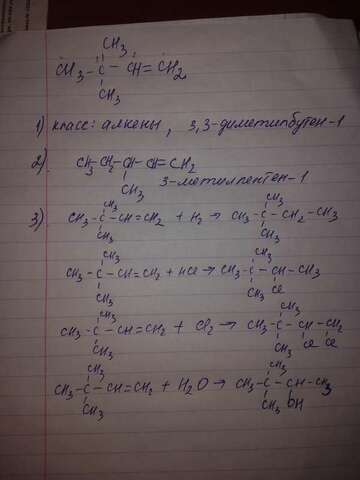 CH3
CH3 - C - CH = CH2
CH3
1) класс: алкены, 3,3-диметилбутен-1
2) CH3-CH2-CH-CH=CH2
CH3
3-метилпентен-1
3) CH3 CH3
CH3-C-CH=CH2 + H2 → CH3-C-CH2-CH3
CH3 CH3
CH3 CH3
CH3-C-CH=CH2 + HCl → CH3-C-CH-CH3
CH3 CH3 Cl
CH3 CH3
CH3-C-CH=CH2 + Cl2 → CH3-C-CH-CH2
CH3 CH3 Cl Cl
CH3 CH3
CH3-C-CH=CH2 + H2O → CH3-C-CH-CH3
CH3 CH3 OH